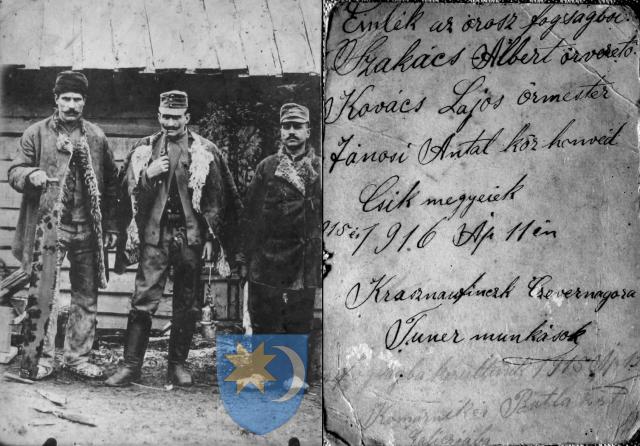 Emlék az orosz fogságból.
Szakács Albert őrvezető
Kovács Lajos őrmester
Jánosi Antal köz honvéd
Csik megyeiek
1916 Ap 11 én
Krasznaufinszk Czevernagora
Tuner munkások
1915